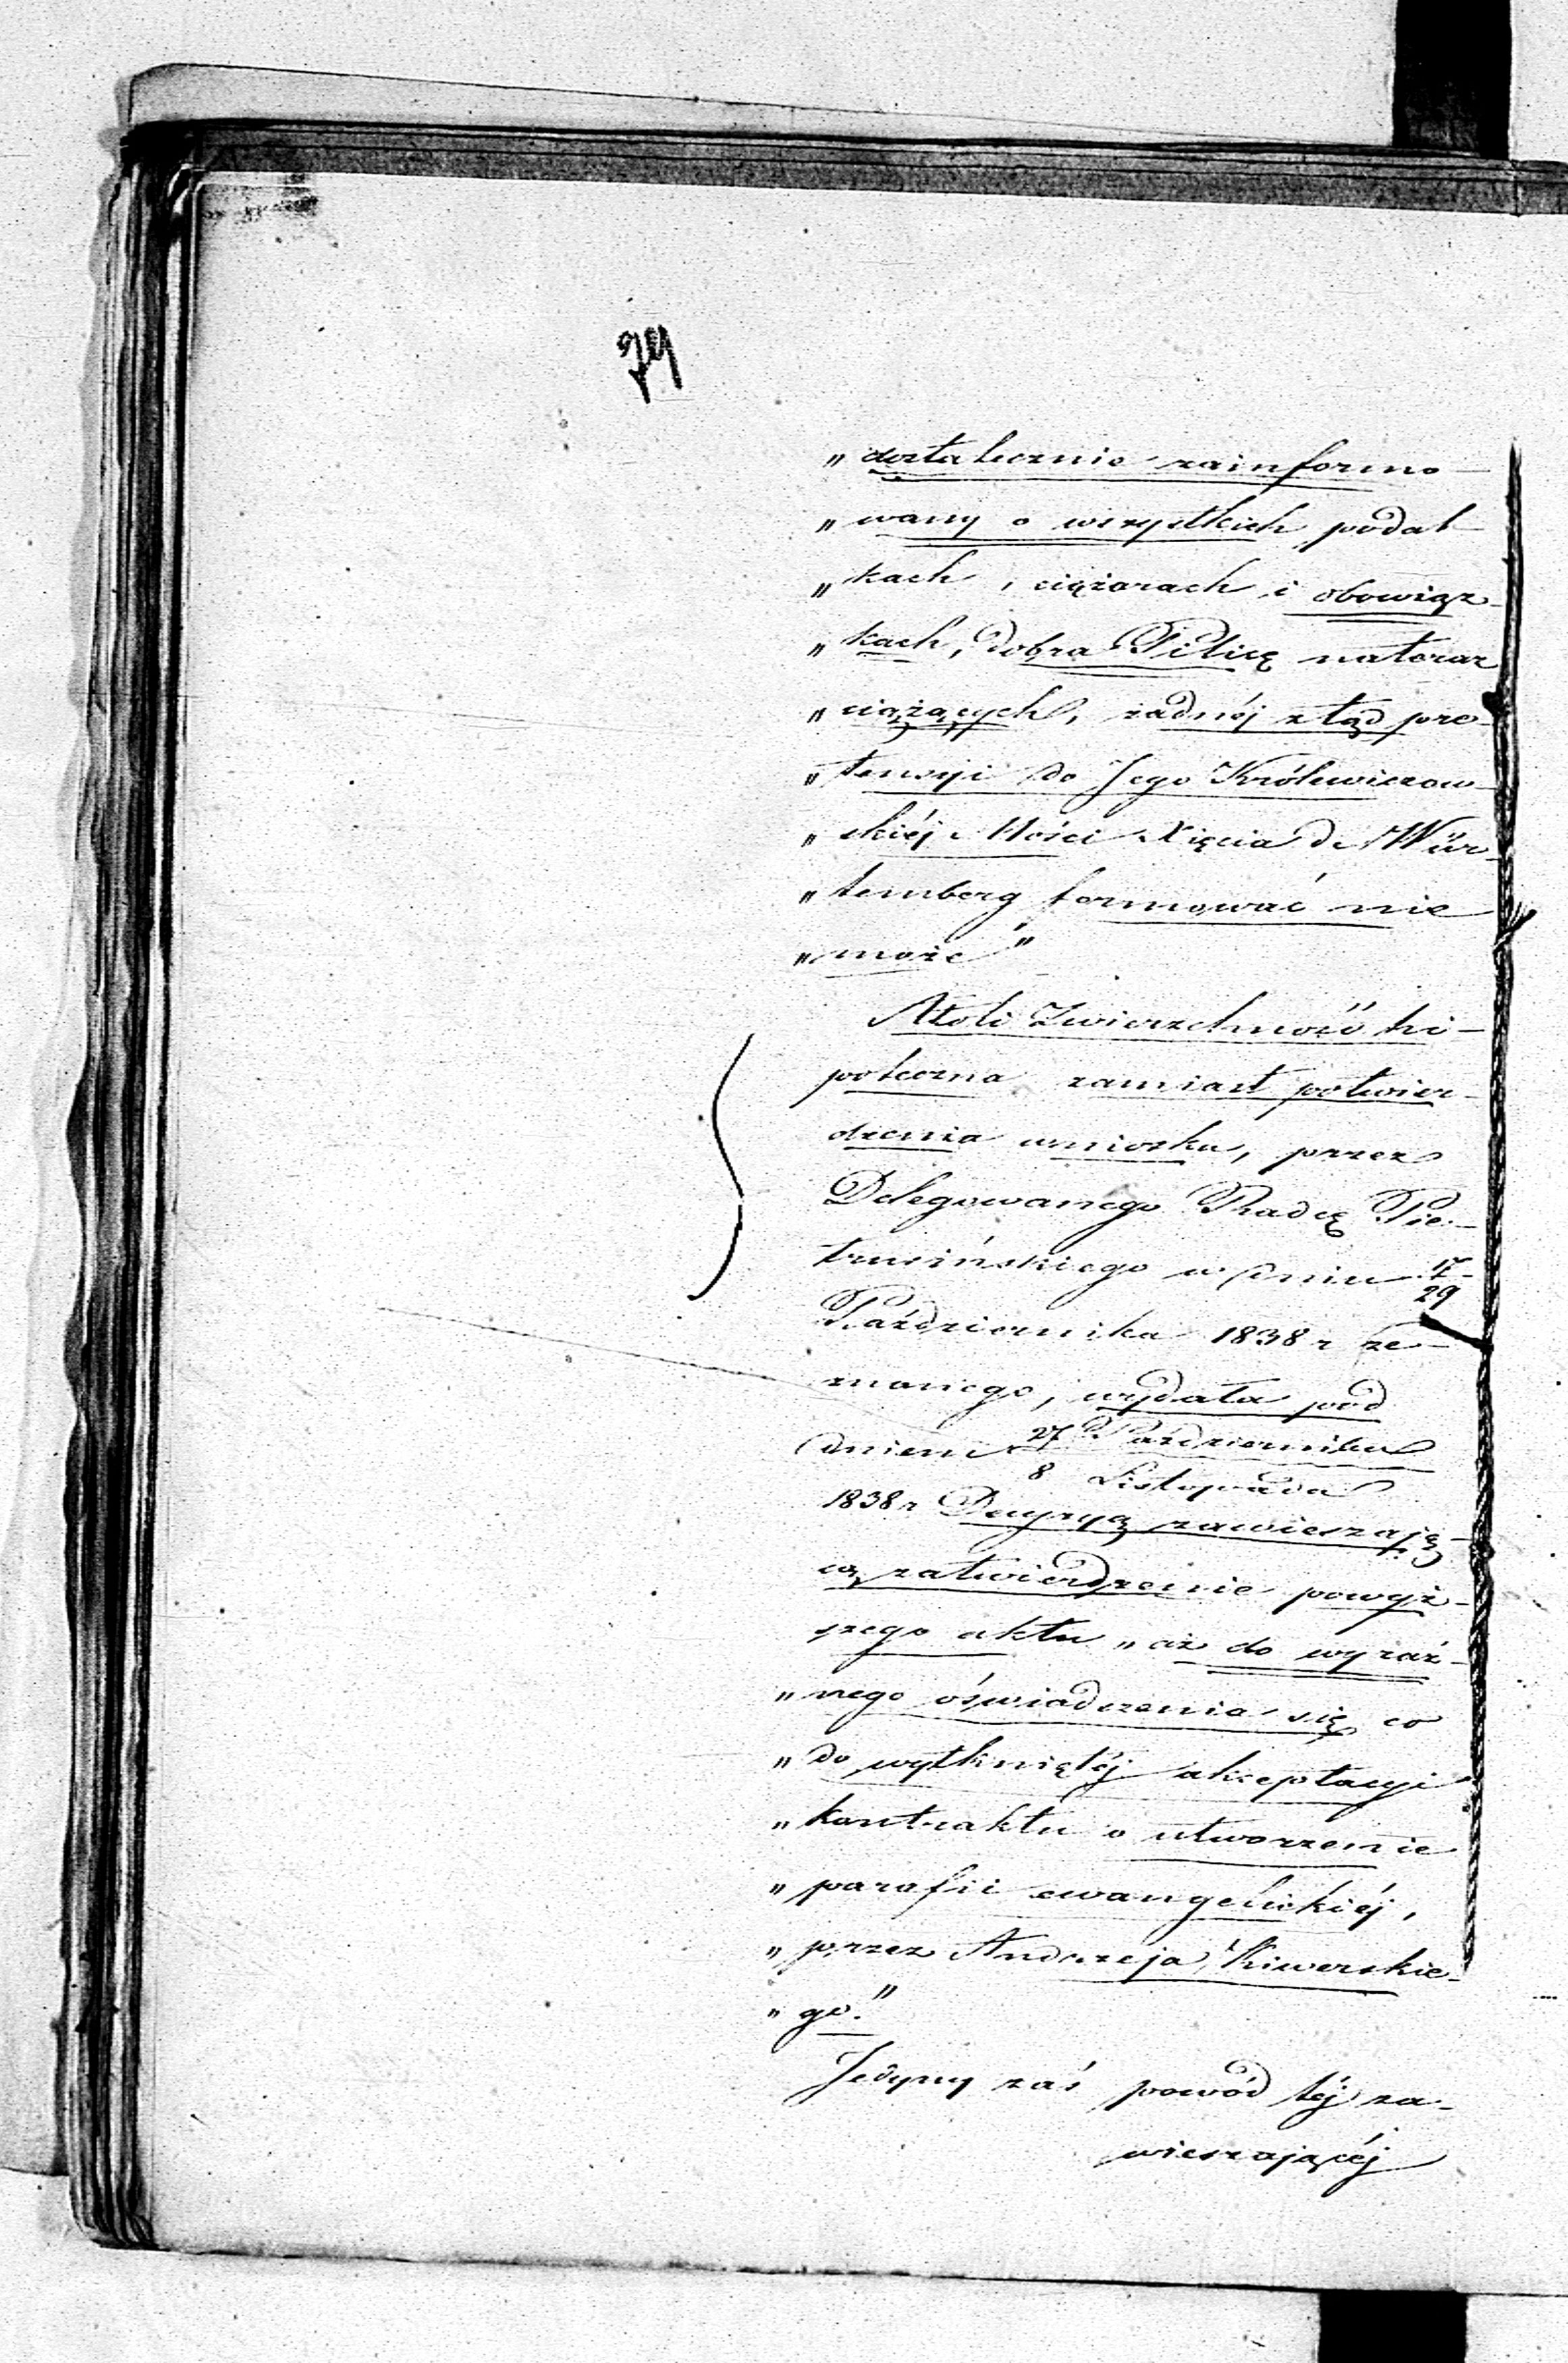 „dostatecznie zainformo-
„wany o wszystkich podat-
„kach, ciężarach i obowiąz-
„kach, dobra Pilicę nateraz
„ciążących, żadnéj ztąd pre-
„tensyi do Jego Królewiczow-
„skiéj Mości Xięcia de Wür-
„temberg formować nie
„może"
Atoli Zwierzchność hi-
poteczna zamiast potwier-
dzenia wniosku, przez
Delegowanego Radcę Pie-
trusińskiego w dniu 17/29
Października 1838 r ze-
znanego, wydała pod
dniem 27 Października
8 Listopada
1838 r Decyzyą zawieszają-
cą zatwierdzenie powyż-
szego aktu „aż do wyraź-
„nego oświadczenia się co
„do wytkniętéj akceptacyi
„kontraktu o utworzenie
„parafii ewangelickiéj,
„przez Andrzeja Kiwerskie-
„go."
Jedyny zaś powód téj za-
wieszającéj